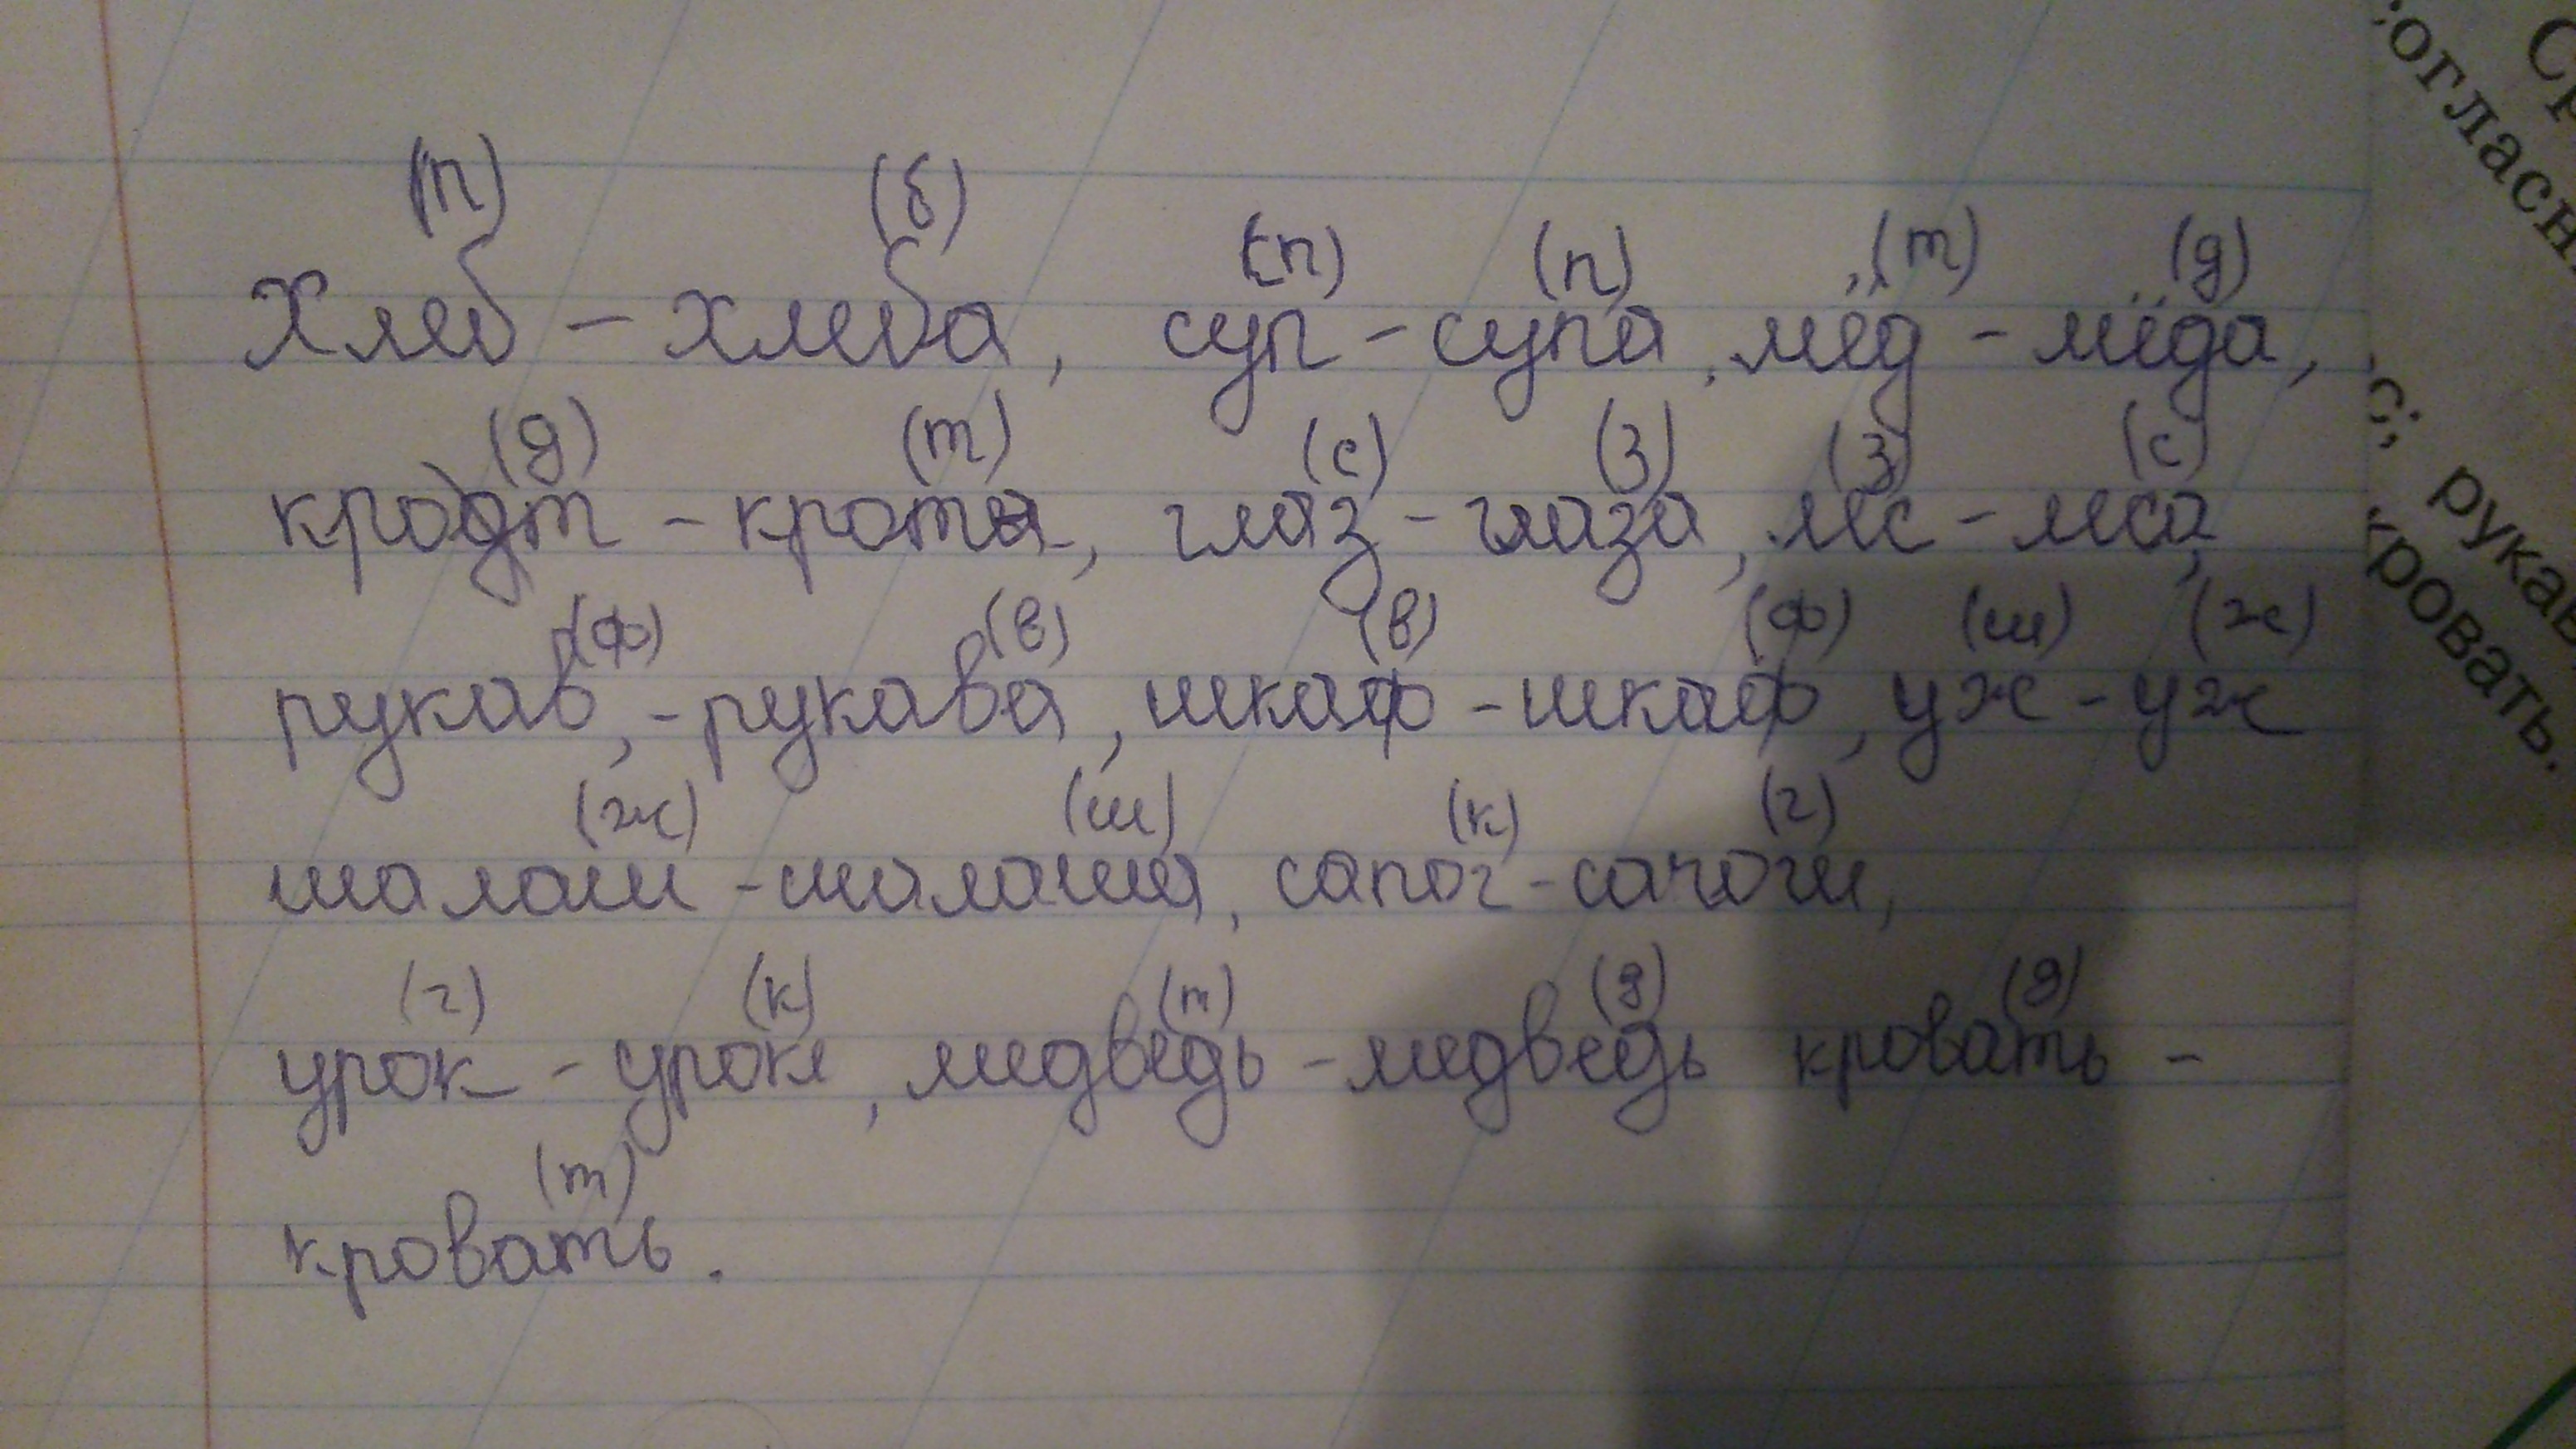 (п) (б) (п) (п) (т) (д)
Хлеб - хлеба, суп - супа, мёд - мёда,
(д) (т) (с) (з) (з) (с)
кро(д)т - крота, глаз - глаза, лес - леса,
(ф) (в) (в) (ф) (ш) (ж)
рукав, - рукава, шкаф - шкаф, уж - уж
(ж) (ш) (к) (г)
шалаш - шалаша, сапог - сапоги,
(г) (к) (т) (д) (д)
урок - уроки, медведь - медведь кровать -
(т)
кровать.
согласн
с; рукав
кровать.